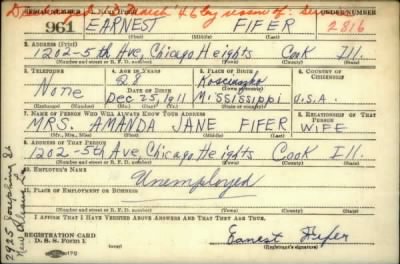 SERIAL NUMBER 1. NAME (Print) ORDER NUMBER
961 EARNEST FIFER 2816
(First) (Middle) (Last)
2. ADDRESS (Print)
1202-5th Ave, Chicago Heights Cook Ill.
(Number and street or R. F. D. number) (Town) (County) (State)
3. TELEPHONE 4. AGE IN YEARS 5. PLACE OF BIRTH 6. COUNTRY OF CITIZENSHIP
None 28 Kosciusko
DATE OF BIRTH
Dec 25, 1911 Mississippi U.S.A.
(Mo.) (Day) (Yr.) (State or country)
7. NAME OF PERSON WHO WILL ALWAYS KNOW YOUR ADDRESS 8. RELATIONSHIP OF THAT PERSON
MRS. AMANDA JANE FIFER WIFE
(Mr., Mrs., Miss) (First) (Middle) (Last)
9. ADDRESS OF THAT PERSON
1202-5th Ave, Chicago Heights Cook Ill.
(Number and street or R. F. D. number) (Town) (County) (State)
10. EMPLOYER'S NAME
Unemployed
11. PLACE OF EMPLOYMENT OR BUSINESS
(Number and street or R. F. D. number) (Town) (County) (State)
I AFFIRM THAT I HAVE VERIFIED ABOVE ANSWERS AND THAT THEY ARE TRUE.
REGISTRATION CARD
D. S. S. Form 1
Earnest Fifer
(Registrant's signature)
2925 Josephine St
New Orleans